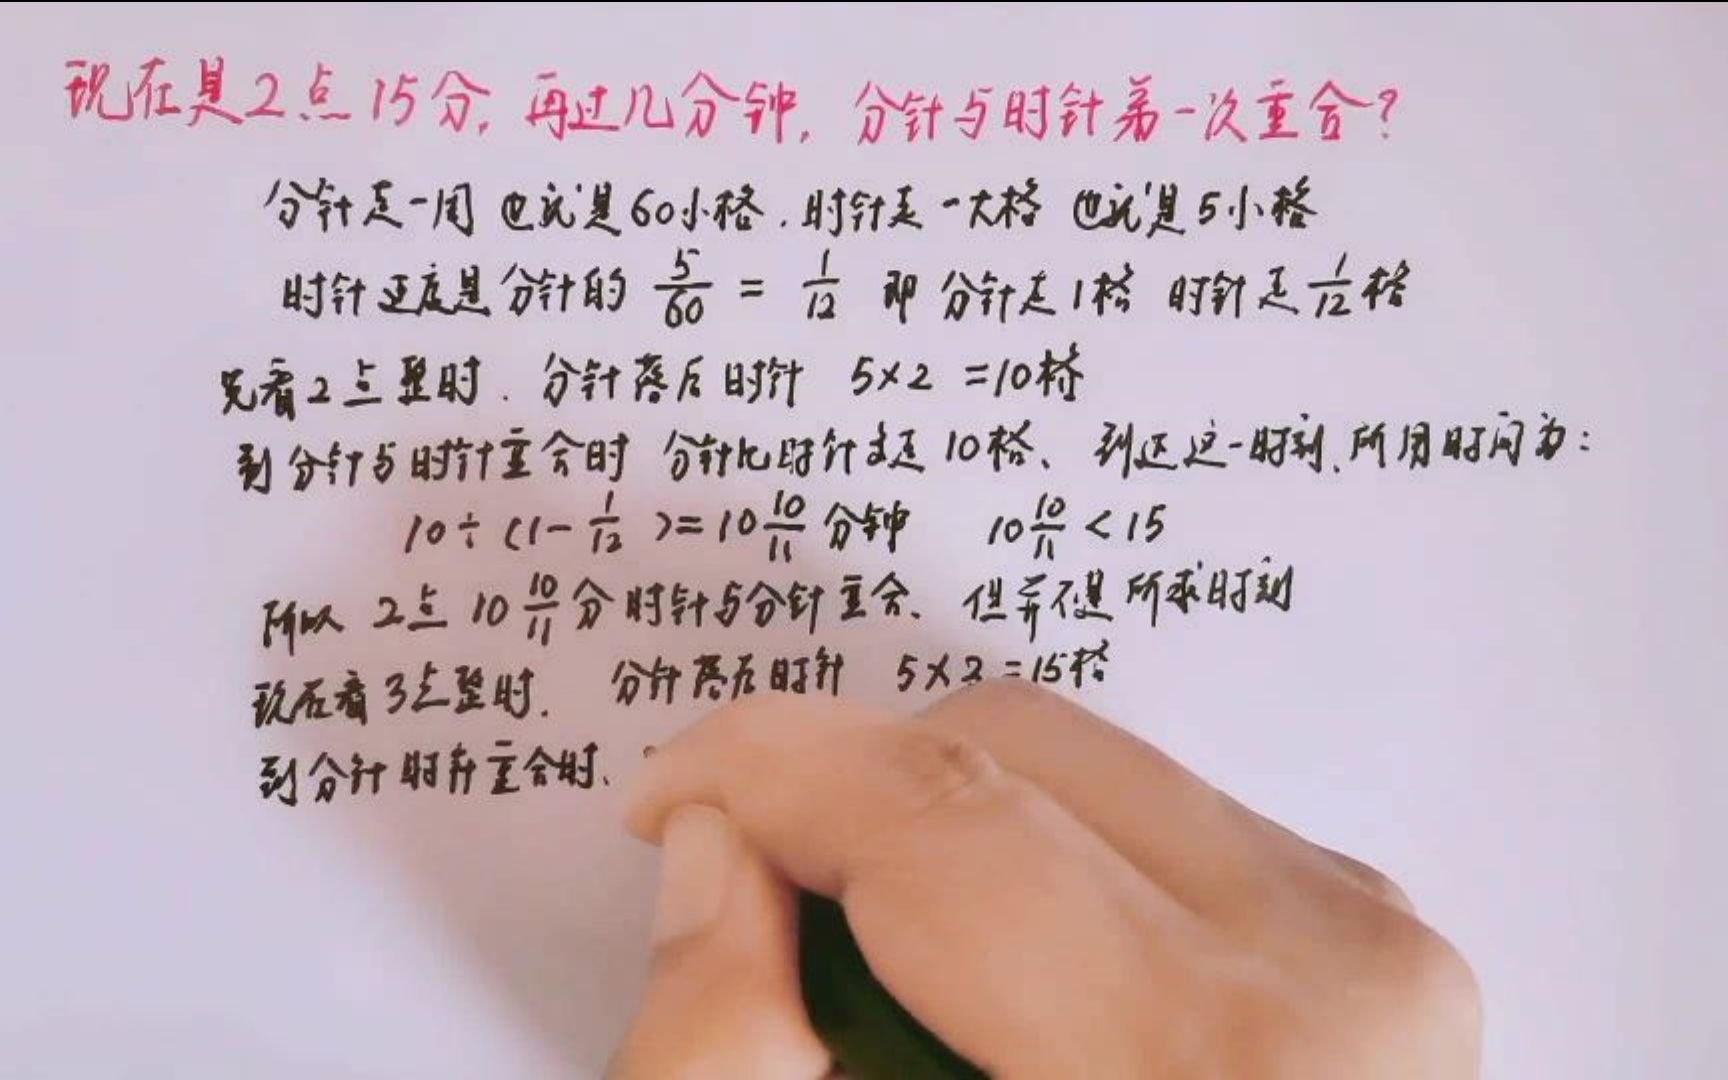 现在是2点15分,再过几分钟,分针与时针第一次重合?
分针走一周 也就是60小格.时针走一大格 也就是5小格
时针速度是分针的 5/60 = 1/12 即 分针走1格 时针走1/12格
先看2点整时.分针落后时针 5×2 =10格
到分针与时针重合时 分针比时针多走10格、到达这一时刻、所用时间为:
10÷(1-1/12)=10 10/11 分钟 10 10/11 < 15
所以 2点 10 10/11 分时针与分针重合、但并不是所求时刻
现在看3点整时. 分针落后时针 5×3=15格
到分针时针重合时、